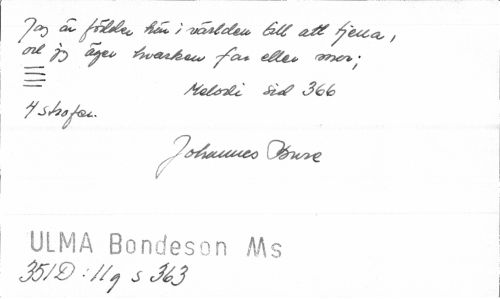 Jag är födder här i världen till att tjena,
och jag äger hwarken far eller mor;
Melodi sid 366
4 strofer.
Johannes Bure
ULMA Bondeson Ms
351D:11q s 363